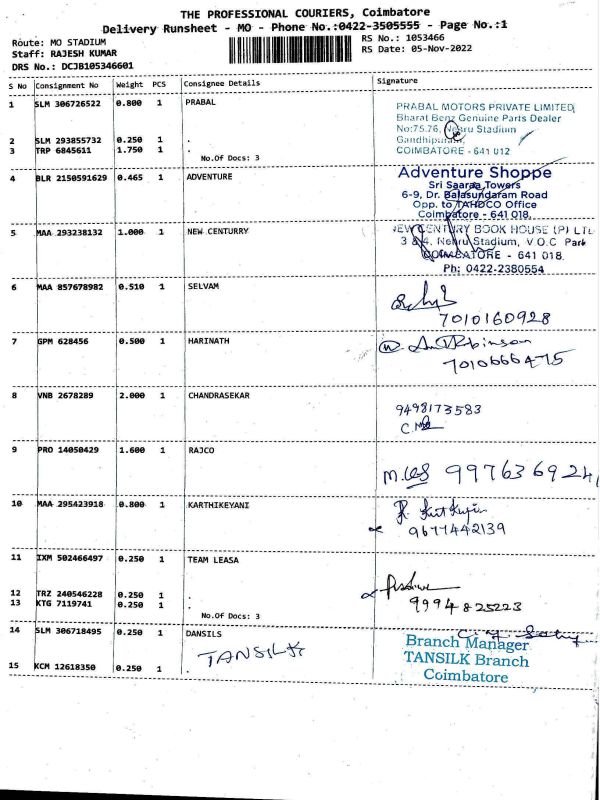 THE PROFESSIONAL COURIERS, Coimbatore
Delivery Runsheet - MO - Phone No.:0422-3505555 - Page No.:1
Route: MO STADIUM
RS No.: 1053466
Staff: RAJESH KUMAR
RS Date: 05-Nov-2022
DRS No.: DCJB105346601
S No Consignment No Weight PCS Consignee Details Signature
1 SLM 306726522 0.800 1 PRABAL
PRABAL MOTORS PRIVATE LIMITED
Bharat Benz Genuine Parts Dealer
No:75.76, Nehru Stadium
Gandhipuram,
COIMBATORE - 641 012
2 SLM 293855732 0.250 1 .
3 TRP 6845611 1.750 1 .
No.Of Docs: 3
4 BLR 2150591629 0.465 1 ADVENTURE
Adventure Shoppe
Sri Saaraa Towers
6-9, Dr. Balasundaram Road
Opp. to TAHDCO Office
Coimbatore - 641 018.
5 MAA 293238132 1.000 1 NEW CENTURRY
NEW CENTURY BOOK HOUSE (P) LTD
3 & 4, Nehru Stadium, V.O.C Park
COIMBATORE - 641 018.
Ph: 0422-2380554
6 MAA 857678982 0.510 1 SELVAM
7010160928
7 GPM 628456 0.500 1 HARINATH
Robinson
7010666475
8 VNB 2678289 2.000 1 CHANDRASEKAR
9498173583
9 PRO 14050429 1.600 1 RAJCO
9976369241
10 MAA 295423918 0.800 1 KARTHIKEYANI
9677442139
11 IXM 502466497 0.250 1 TEAM LEASA
12 TRZ 240546228 0.250 1 .
13 KTG 7119741 0.250 1 .
9994825223
No.Of Docs: 3
14 SLM 306718495 0.250 1 DANSILS
TANSILK
Branch Manager
TANSILK Branch
Coimbatore
15 KCM 12618350 0.250 1 .